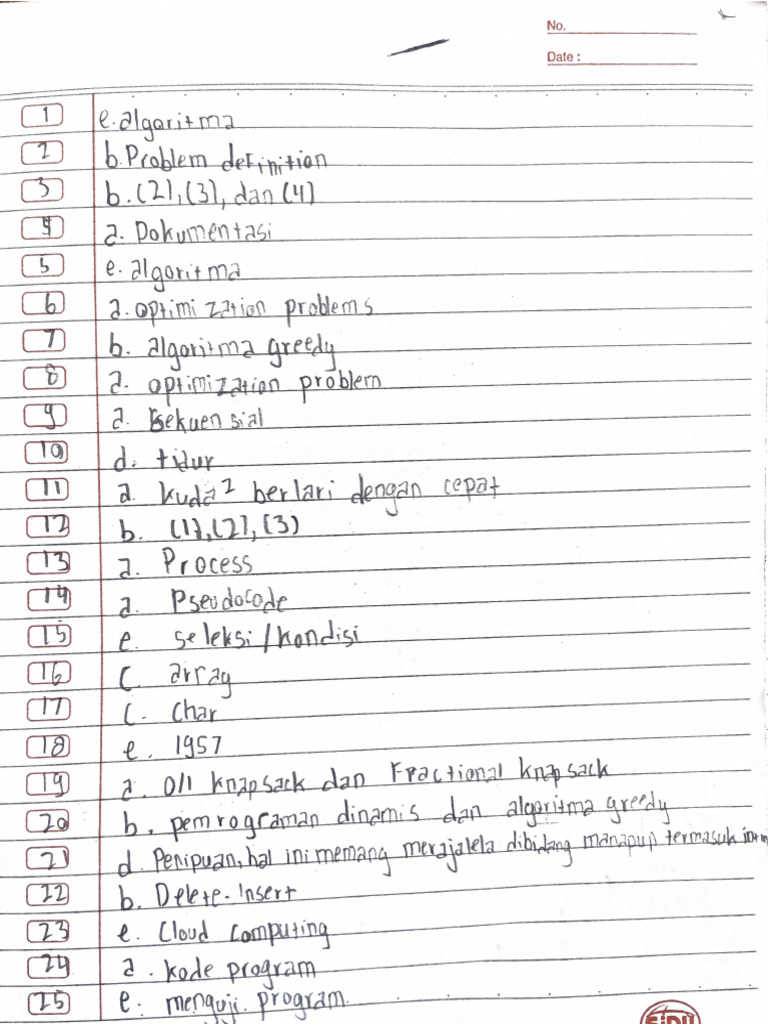 No.
Date :
1 e. algoritma
2 b. Problem definition
3 b. (2), (3), dan (4)
4 a. Dokumentasi
5 e. algoritma
6 a. optimization problems
7 b. algoritma greedy
8 a. optimization problem
9 a. Sekuensial
10 d. tidur
11 a. kuda² berlari dengan cepat
12 b. (1), (2), (3)
13 a. Process
14 a. Pseudocode
15 e. seleksi/kondisi
16 C. array
17 C. Char
18 e. 1957
19 a. 0/1 knapsack dan Fractional knapsack
20 b. pemrograman dinamis dan algoritma greedy
21 d. Penipuan, hal ini memang merajalela dibidang manapun termasuk
22 b. Delete-Insert
23 e. Cloud Computing
24 a. kode program
25 e. menguji program